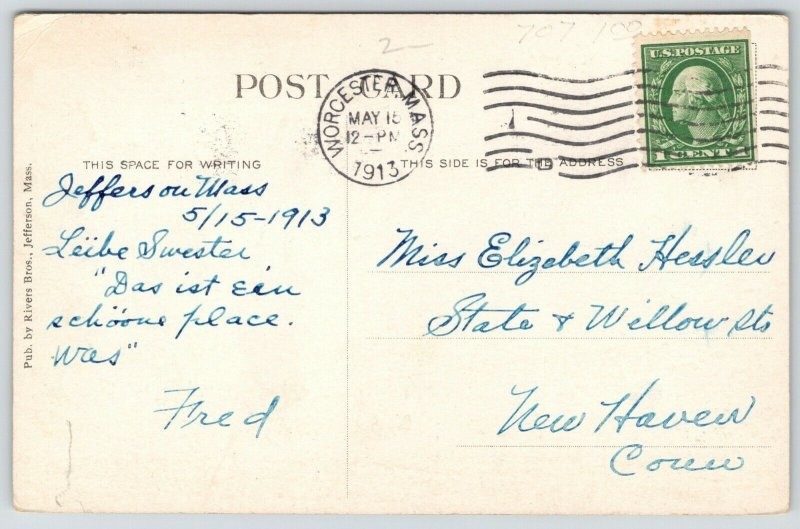 2
707 100
U.S. POSTAGE
1 CENT 1
POST CARD
WORCESTER, MASS.
MAY 15
12-PM
1913
THIS SPACE FOR WRITING
THIS SIDE IS FOR THE ADDRESS
Pub. by Rivers Bros., Jefferson, Mass.
Jefferson Mass
5/15-1913
Leibe Swester
"Das ist ein
schöone place.
Was"
Fred
Miss Elizabeth Hessler
State & Willow sts
New Haven
Conn